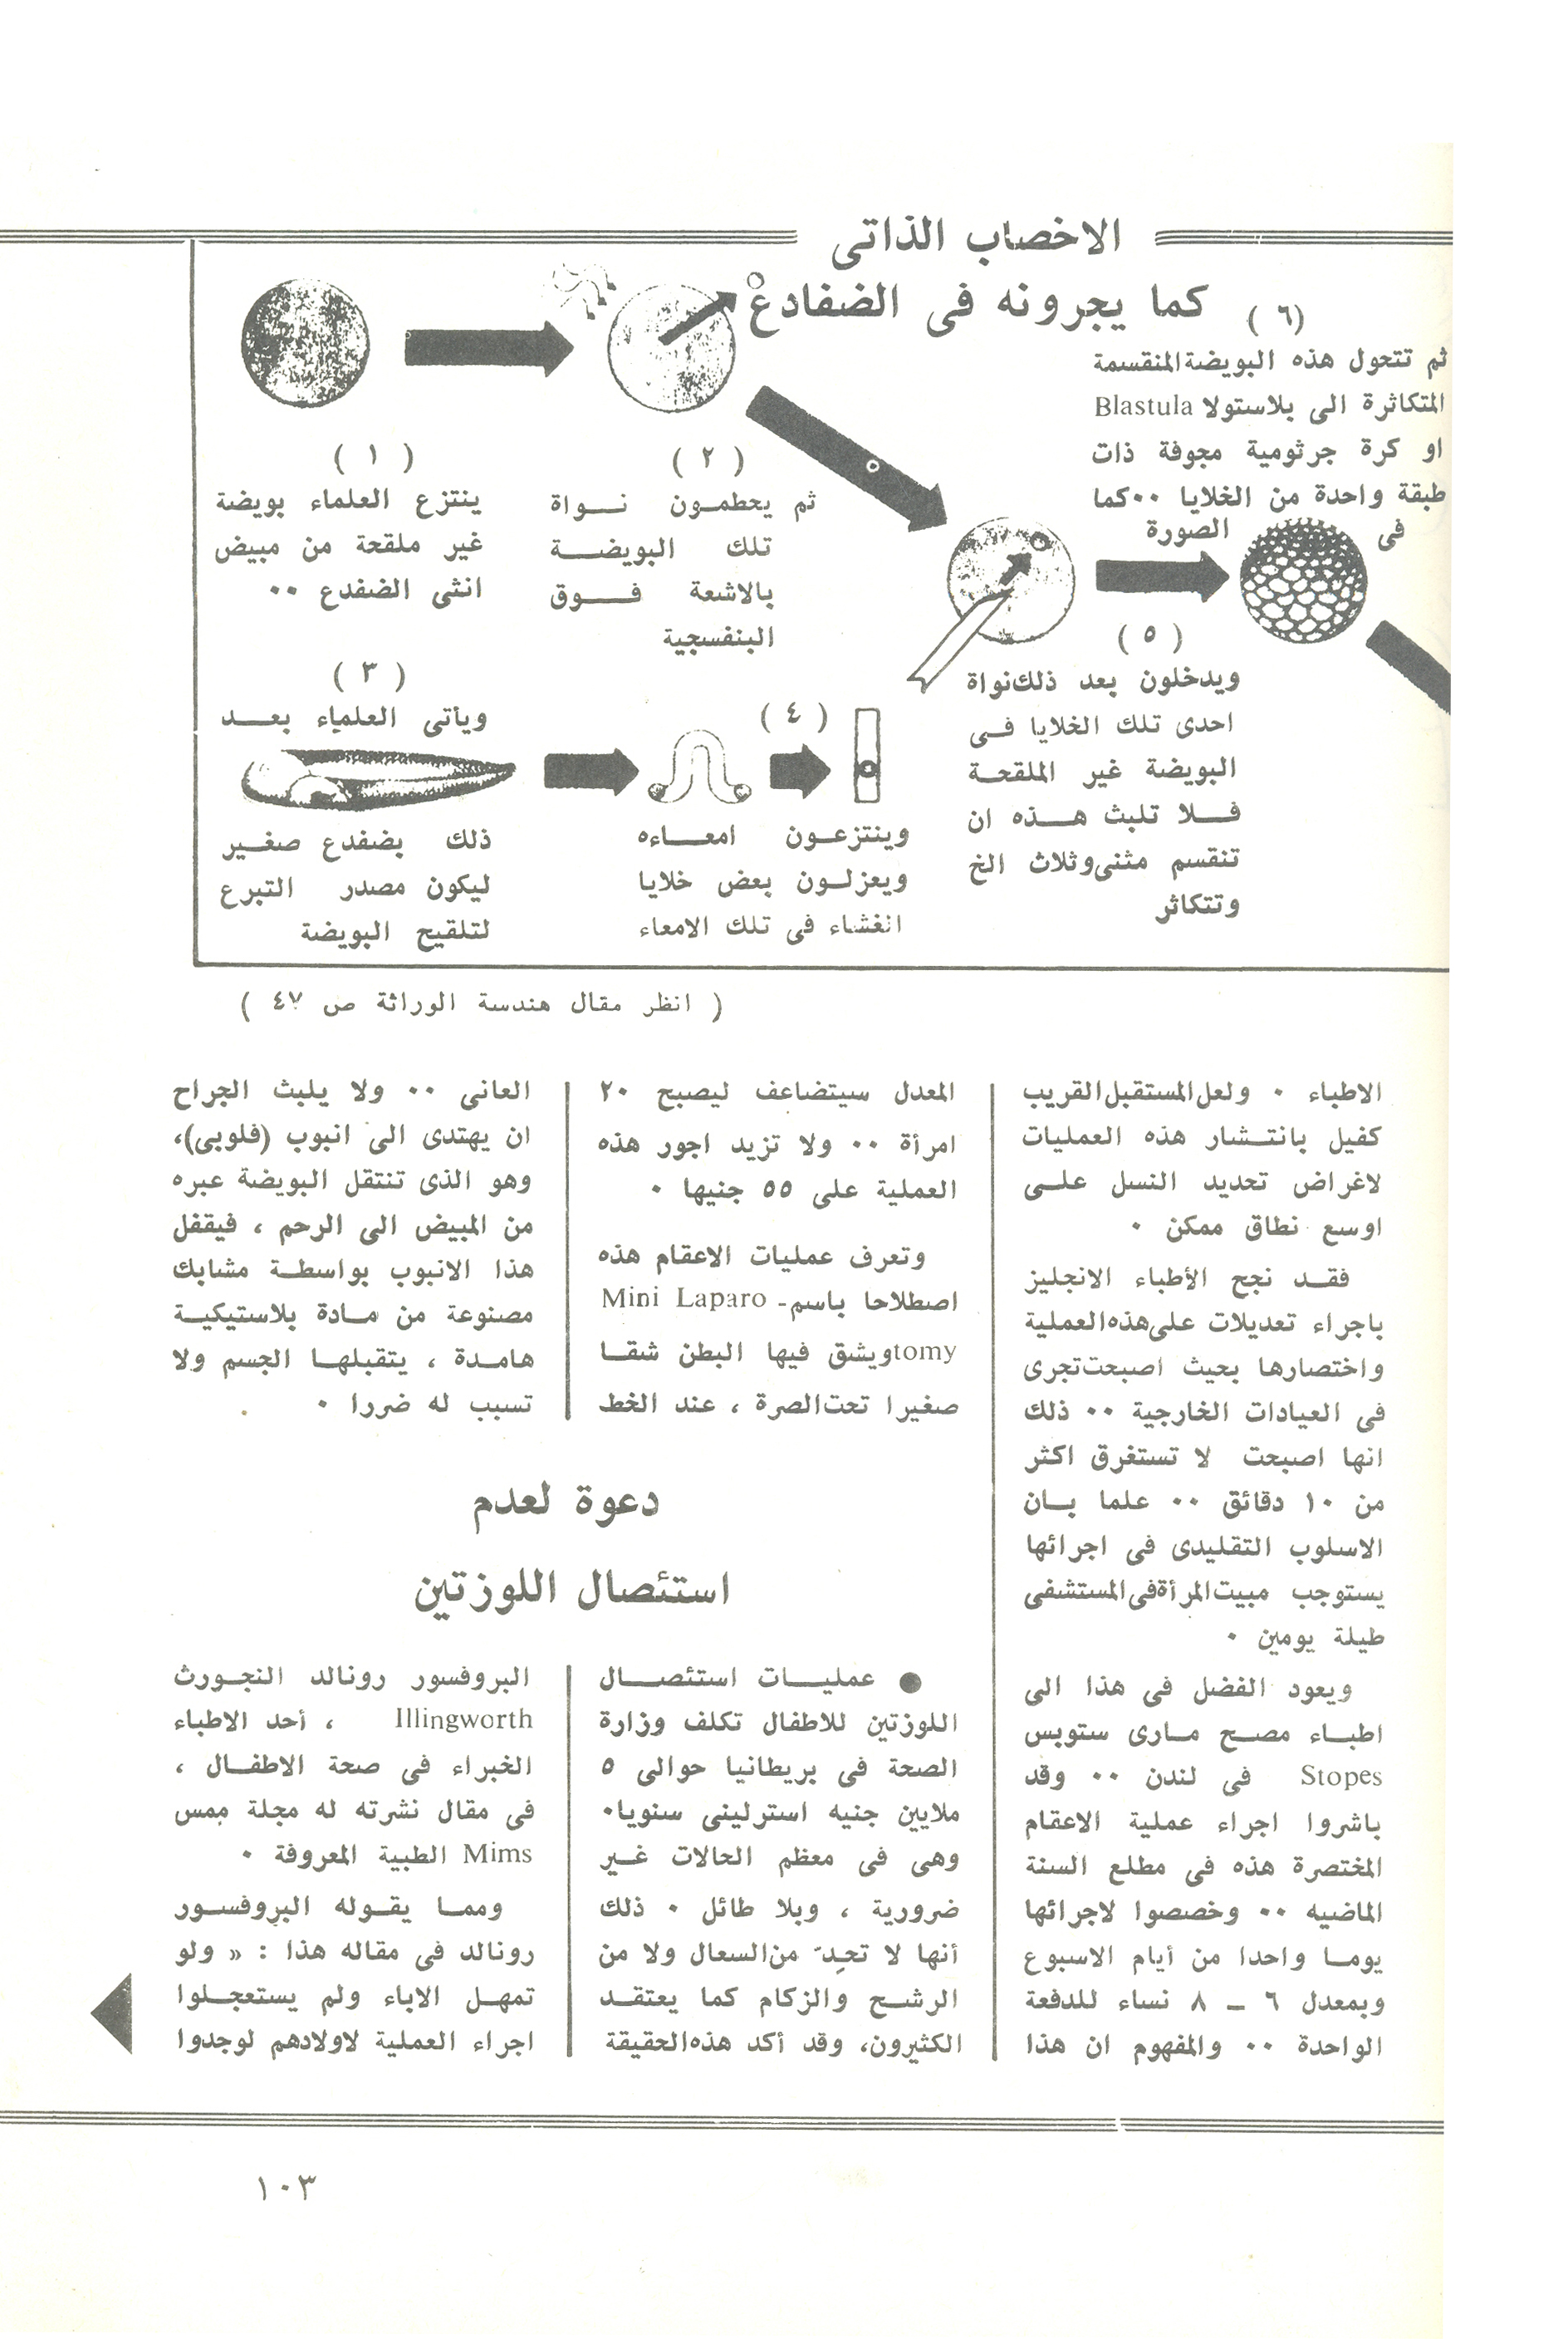 الاخصاب الذاتى
كما يجرونه فى الضفادع
( ١ )
ينتزع العلماء بويضة
غير ملقحة من مبيض
انثى الضفدع ٠٠
( ٢ )
ثم يحطمون نواة
تلك البويضة
بالاشعة فوق
البنفسجية
( ٣ )
ويأتى العلماء بعد
ذلك بضفدع صغير
ليكون مصدر التبرع
لتلقيح البويضة
( ٤ )
وينتزعون امعاءه
ويعزلون بعض خلايا
انغشاء فى تلك الامعاء
( ٥ )
ويدخلون بعد ذلك نواة
احدى تلك الخلايا فى
البويضة غير الملقحة
فلا تلبث هذه ان
تنقسم مثنى وثلاث الخ
وتتكاثر
( ٦ )
ثم تتحول هذه البويضة المنقسمة
المتكاثرة الى بلاستولا Blastula
او كرة جرثومية مجوفة ذات
طبقة واحدة من الخلايا ٠٠ كما
فى الصورة
( انظر مقال هندسة الوراثة ص ٤٧ )
الاطباء ٠ ولعل المستقبل القريب
كفيل بانتشار هذه العمليات
لاغراض تحديد النسل على
اوسع نطاق ممكن ٠
فقد نجح الأطباء الانجليز
باجراء تعديلات على هذه العملية
واختصارها بحيث اصبحت تجرى
فى العيادات الخارجية ٠٠ ذلك
انها اصبحت لا تستغرق اكثر
من ١٠ دقائق ٠٠ علما بان
الاسلوب التقليدى فى اجرائها
يستوجب مبيت المرأة فى المستشفى
طيلة يومين ٠
ويعود الفضل فى هذا الى
اطباء مصح مارى ستوبس
Stopes فى لندن ٠٠ وقد
باشروا اجراء عملية الاعقام
المختصرة هذه فى مطلع السنة
الماضيه ٠٠ وخصصوا لاجرائها
يوما واحدا من أيام الاسبوع
وبمعدل ٦ ـ ٨ نساء للدفعة
الواحدة ٠٠ والمفهوم ان هذا
المعدل سيتضاعف ليصبح ٢٠
امرأة ٠٠ ولا تزيد اجور هذه
العملية على ٥٥ جنيها ٠
وتعرف عمليات الاعقام هذه
اصطلاحا باسم Mini Laparo-
tomy ويشق فيها البطن شقا
صغيرا تحت الصرة ، عند الخط
العانى ٠٠ ولا يلبث الجراح
ان يهتدى الى انبوب (فلوبى)،
وهو الذى تنتقل البويضة عبره
من المبيض الى الرحم ، فيقفل
هذا الانبوب بواسطة مشابك
مصنوعة من مادة بلاستيكية
هامدة ، يتقبلها الجسم ولا
تسبب له ضررا ٠
دعوة لعدم
استئصال اللوزتين
● عمليات استئصال
اللوزتين للاطفال تكلف وزارة
الصحة فى بريطانيا حوالى ٥
ملايين جنيه استرلينى سنويا٠
وهى فى معظم الحالات غير
ضرورية ، وبلا طائل ٠ ذلك
أنها لا تحدّ من السعال ولا من
الرشح والزكام كما يعتقد
الكثيرون، وقد أكد هذه الحقيقة
البروفسور رونالد النجورث
Illingworth ، أحد الاطباء
الخبراء فى صحة الاطفال ،
فى مقال نشرته له مجلة ممس
Mims الطبية المعروفة ٠
ومما يقوله البروفسور
رونالد فى مقاله هذا : « ولو
تمهل الاباء ولم يستعجلوا
اجراء العملية لاولادهم لوجدوا
١٠٣